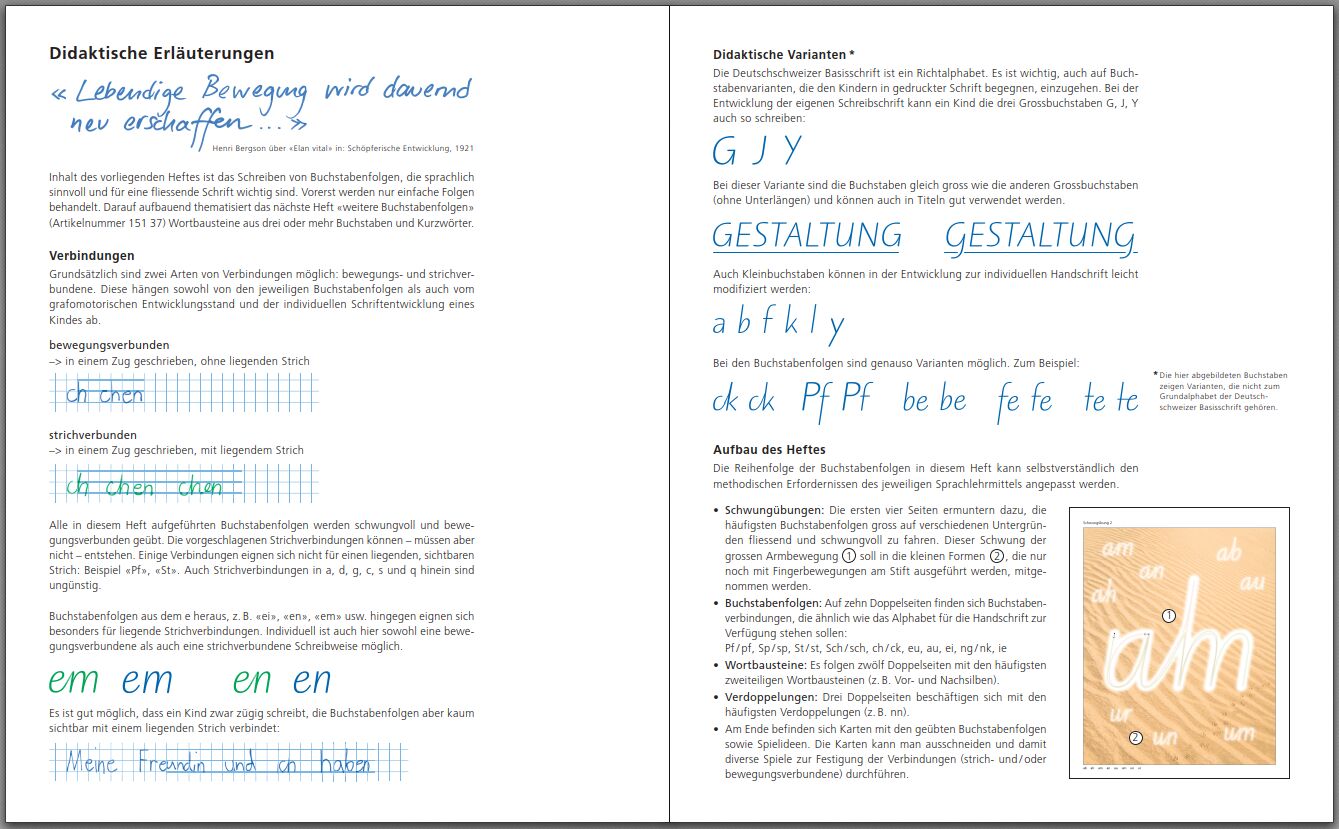 Didaktische Erläuterungen
« Lebendige Bewegung wird dauernd
neu erschaffen... »
Henri Bergson über «Elan vital» in: Schöpferische Entwicklung, 1921
Inhalt des vorliegenden Heftes ist das Schreiben von Buchstabenfolgen, die sprachlich
sinnvoll und für eine fliessende Schrift wichtig sind. Vorerst werden nur einfache Folgen
behandelt. Darauf aufbauend thematisiert das nächste Heft «weitere Buchstabenfolgen»
(Artikelnummer 151 37) Wortbausteine aus drei oder mehr Buchstaben und Kurzwörter.
Verbindungen
Grundsätzlich sind zwei Arten von Verbindungen möglich: bewegungs- und strichver-
bundene. Diese hängen sowohl von den jeweiligen Buchstabenfolgen als auch vom
grafomotorischen Entwicklungsstand und der individuellen Schriftentwicklung eines
Kindes ab.
bewegungsverbunden
–> in einem Zug geschrieben, ohne liegenden Strich
ch chen
strichverbunden
–> in einem Zug geschrieben, mit liegendem Strich
ch chen chen
Alle in diesem Heft aufgeführten Buchstabenfolgen werden schwungvoll und bewe-
gungsverbunden geübt. Die vorgeschlagenen Strichverbindungen können – müssen aber
nicht – entstehen. Einige Verbindungen eignen sich nicht für einen liegenden, sichtbaren
Strich: Beispiel «Pf», «St». Auch Strichverbindungen in a, d, g, c, s und q hinein sind
ungünstig.
Buchstabenfolgen aus dem e heraus, z. B. «ei», «en», «em» usw. hingegen eignen sich
besonders für liegende Strichverbindungen. Individuell ist auch hier sowohl eine bewe-
gungsverbundene als auch eine strichverbundene Schreibweise möglich.
em em en en
Es ist gut möglich, dass ein Kind zwar zügig schreibt, die Buchstabenfolgen aber kaum
sichtbar mit einem liegenden Strich verbindet:
Meine Freundin und ich haben
Didaktische Varianten *
Die Deutschschweizer Basisschrift ist ein Richtalphabet. Es ist wichtig, auch auf Buch-
stabenvarianten, die den Kindern in gedruckter Schrift begegnen, einzugehen. Bei der
Entwicklung der eigenen Schreibschrift kann ein Kind die drei Grossbuchstaben G, J, Y
auch so schreiben:
G J Y
Bei dieser Variante sind die Buchstaben gleich gross wie die anderen Grossbuchstaben
(ohne Unterlängen) und können auch in Titeln gut verwendet werden.
GESTALTUNG GESTALTUNG
Auch Kleinbuchstaben können in der Entwicklung zur individuellen Handschrift leicht
modifiziert werden:
a b f k l y
Bei den Buchstabenfolgen sind genauso Varianten möglich. Zum Beispiel:
ck ck Pf Pf be be fe fe te te
* Die hier abgebildeten Buchstaben
zeigen Varianten, die nicht zum
Grundalphabet der Deutsch-
schweizer Basisschrift gehören.
Aufbau des Heftes
Die Reihenfolge der Buchstabenfolgen in diesem Heft kann selbstverständlich den
methodischen Erfordernissen des jeweiligen Sprachlehrmittels angepasst werden.
• Schwungübungen: Die ersten vier Seiten ermuntern dazu, die
häufigsten Buchstabenfolgen gross auf verschiedenen Untergrün-
den fliessend und schwungvoll zu fahren. Dieser Schwung der
grossen Armbewegung 1 soll in die kleinen Formen 2, die nur
noch mit Fingerbewegungen am Stift ausgeführt werden, mitge-
nommen werden.
• Buchstabenfolgen: Auf zehn Doppelseiten finden sich Buchstaben-
verbindungen, die ähnlich wie das Alphabet für die Handschrift zur
Verfügung stehen sollen:
Pf/pf, Sp/sp, St/st, Sch/sch, ch/ck, eu, au, ei, ng/nk, ie
• Wortbausteine: Es folgen zwölf Doppelseiten mit den häufigsten
zweiteiligen Wortbausteinen (z. B. Vor- und Nachsilben).
• Verdoppelungen: Drei Doppelseiten beschäftigen sich mit den
häufigsten Verdoppelungen (z. B. nn).
• Am Ende befinden sich Karten mit den geübten Buchstabenfolgen
sowie Spielideen. Die Karten kann man ausschneiden und damit
diverse Spiele zur Festigung der Verbindungen (strich- und/oder
bewegungsverbundene) durchführen.
Schwungübung 2
am ab
an au
ah
1
am
ur
2 un um